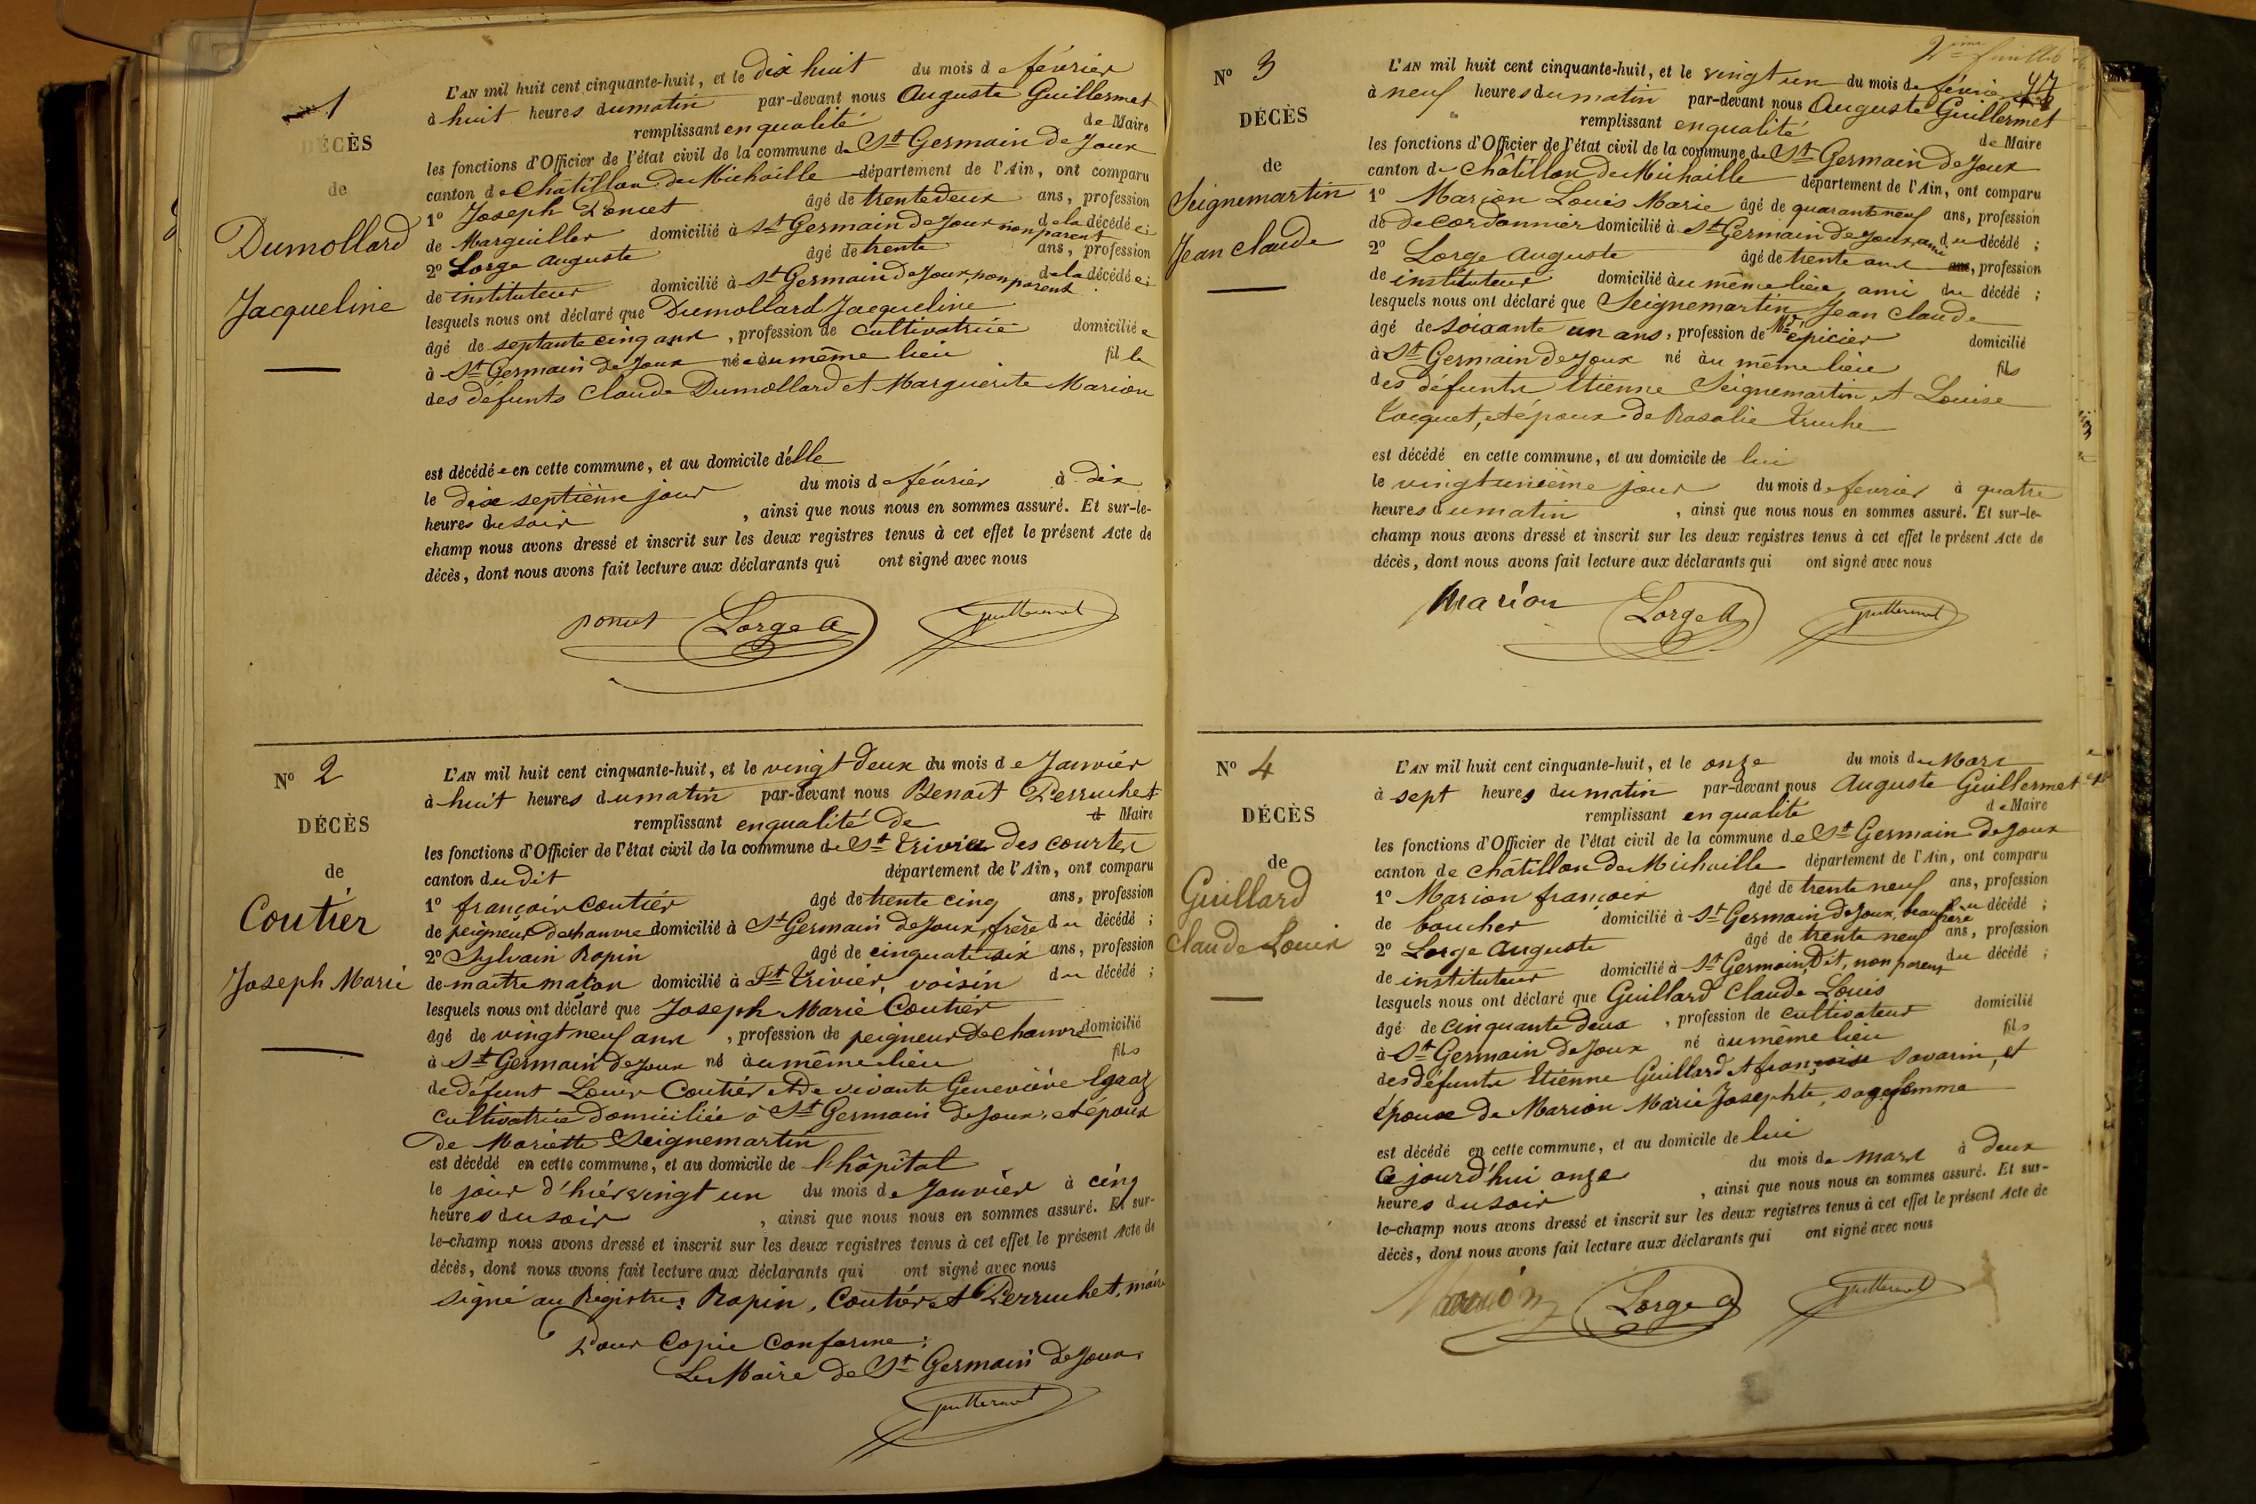 1
DÉCÈS
de
Dumollard
Jacqueline
L'AN mil huit cent cinquante-huit, et le dix huit du mois de février
à huit heures du matin par-devant nous Auguste Guillermet
remplissant en qualité de Maire
les fonctions d'Officier de l'état civil de la commune de St Germain de Joux
canton de Châtillon de Michaille département de l'Ain, ont comparu
1° Joseph Poncet âgé de trente deux ans, profession
de Marguiller domicilié à St Germain de Joux non parent de la décédée ;
2° Lorge Auguste âgé de trente ans, profession
de instituteur domicilié à St Germain de Joux, non parent de la décédée ;
lesquels nous ont déclaré que Dumollard Jacqueline
âgé de septante cinq ans, profession de cultivatrice domiciliée
à St Germain de Joux née au même lieu fille
des défunts Claude Dumollard et Marguerite Marion
est décédée en cette commune, et au domicile d'elle
le dix septième jour du mois de février à dix
heures du soir, ainsi que nous nous en sommes assuré. Et sur-le-
champ nous avons dressé et inscrit sur les deux registres tenus à cet effet le présent Acte de
décès, dont nous avons fait lecture aux déclarants qui ont signé avec nous
poncet Lorge A Guillermet
N° 2
DÉCÈS
de
Coutier
Joseph Marie
L'AN mil huit cent cinquante-huit, et le vingt deux du mois de Janvier
à huit heures du matin par-devant nous Benoit Perruchet
remplissant en qualité de d Maire
les fonctions d'Officier de l'état civil de la commune de St Trivier des courtes
canton du dit département de l'Ain, ont comparu
1° françois Coutier âgé de trente cinq ans, profession
de peigneur de chanvre domicilié à St Germain de Joux, frère du décédé ;
2° Sylvain Ropin âgé de cinquante six ans, profession
de maître maçon domicilié à St Trivier, voisin du décédé ;
lesquels nous ont déclaré que Joseph Marie Coutier
âgé de vingt neuf ans, profession de peigneur de chanvre domicilié
à St Germain de Joux né au même lieu fils
de défunt Louis Coutier et de vivante Geneviève Egraz
cultivatrice domiciliée à St Germain de Joux, et époux
de Mariette Seignemartin
est décédé en cette commune, et au domicile de l'hôpital
le jour d'hier vingt un du mois de Janvier à cinq
heures du soir, ainsi que nous nous en sommes assuré. Et sur-
le-champ nous avons dressé et inscrit sur les deux registres tenus à cet effet le présent Acte de
décès, dont nous avons fait lecture aux déclarants qui ont signé avec nous
signé au Registre : Ropin, Coutier et Perruchet, maire
Pour Copie Conforme :
Le Maire de St Germain de Joux
Guillermet
2ème feuillet
47
N° 3
DÉCÈS
de
Seignemartin
Jean Claude
L'AN mil huit cent cinquante-huit, et le vingt un du mois de février
à neuf heures du matin par-devant nous Auguste Guillermet
remplissant en qualité de Maire
les fonctions d'Officier de l'état civil de la commune de St Germain de Joux
canton de Châtillon de Michaille département de l'Ain, ont comparu
1° Marion Louis Marie âgé de quarante neuf ans, profession
de de cordonnier domicilié à St Germain de Joux, ami du décédé ;
2° Lorge Auguste âgé de trente ans ans, profession
de instituteur domicilié au même lieu, ami du décédé ;
lesquels nous ont déclaré que Seignemartin Jean Claude
âgé de soixante un ans, profession de Md épicier domicilié
à St Germain de Joux né au même lieu fils
des défunts Etienne Seignemartin et Louise
Tocquet, et époux de Rosalie Truche
est décédé en cette commune, et au domicile de lui
le vingt unième jour du mois de février à quatre
heures du matin, ainsi que nous nous en sommes assuré. Et sur-le-
champ nous avons dressé et inscrit sur les deux registres tenus à cet effet le présent Acte de
décès, dont nous avons fait lecture aux déclarants qui ont signé avec nous
Marion Lorge A Guillermet
N° 4
DÉCÈS
de
Guillard
Claude Louis
L'AN mil huit cent cinquante-huit, et le onze du mois de Mars
à sept heures du matin par-devant nous Auguste Guillermet
remplissant en qualité de Maire
les fonctions d'Officier de l'état civil de la commune de St Germain de Joux
canton de Châtillon de Michaille département de l'Ain, ont comparu
1° Marion françois âgé de trente neuf ans, profession
de boucher domicilié à St Germain de Joux, beau frère du décédé ;
2° Lorge Auguste âgé de trente neuf ans, profession
de instituteur domicilié à St Germain Dit, non parent du décédé ;
lesquels nous ont déclaré que Guillard Claude Louis
âgé de cinquante deux, profession de cultivateur domicilié
à St Germain de Joux né au même lieu fils
des défunts Etienne Guillard et françoise Savarin, et
époux de Marion Marie Josephte, sage femme
est décédé en cette commune, et au domicile de lui
Ce jourd'hui onze du mois de mars à deux
heures du soir, ainsi que nous nous en sommes assuré. Et sur-
le-champ nous avons dressé et inscrit sur les deux registres tenus à cet effet le présent Acte de
décès, dont nous avons fait lecture aux déclarants qui ont signé avec nous
Marion Lorge A Guillermet